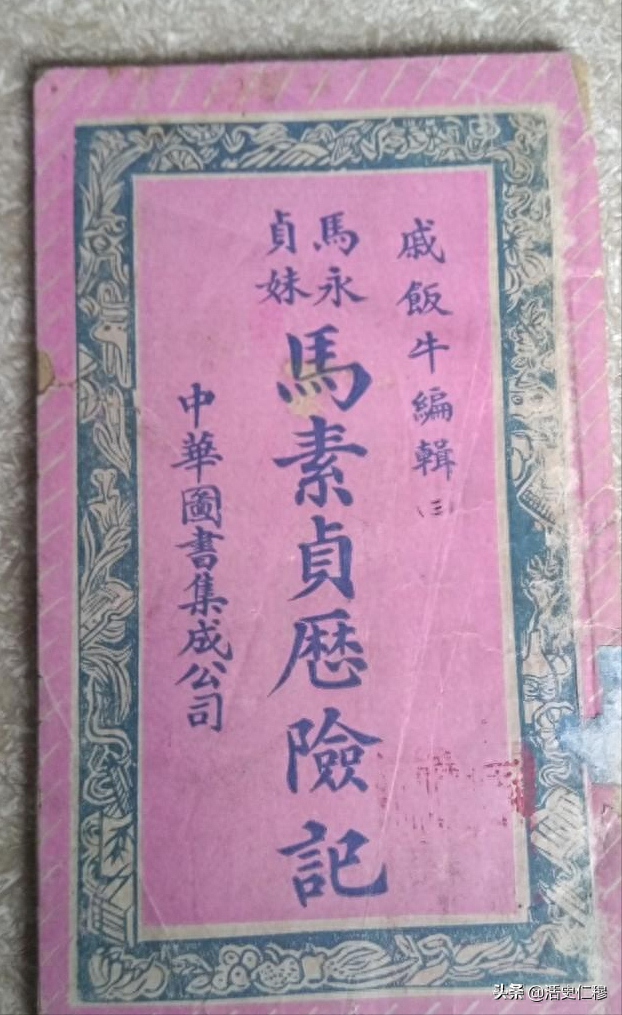 戚飯牛編輯
(三)
馬永
貞妹
馬素貞歷險記
中華圖書集成公司
头条 @活史仁穆